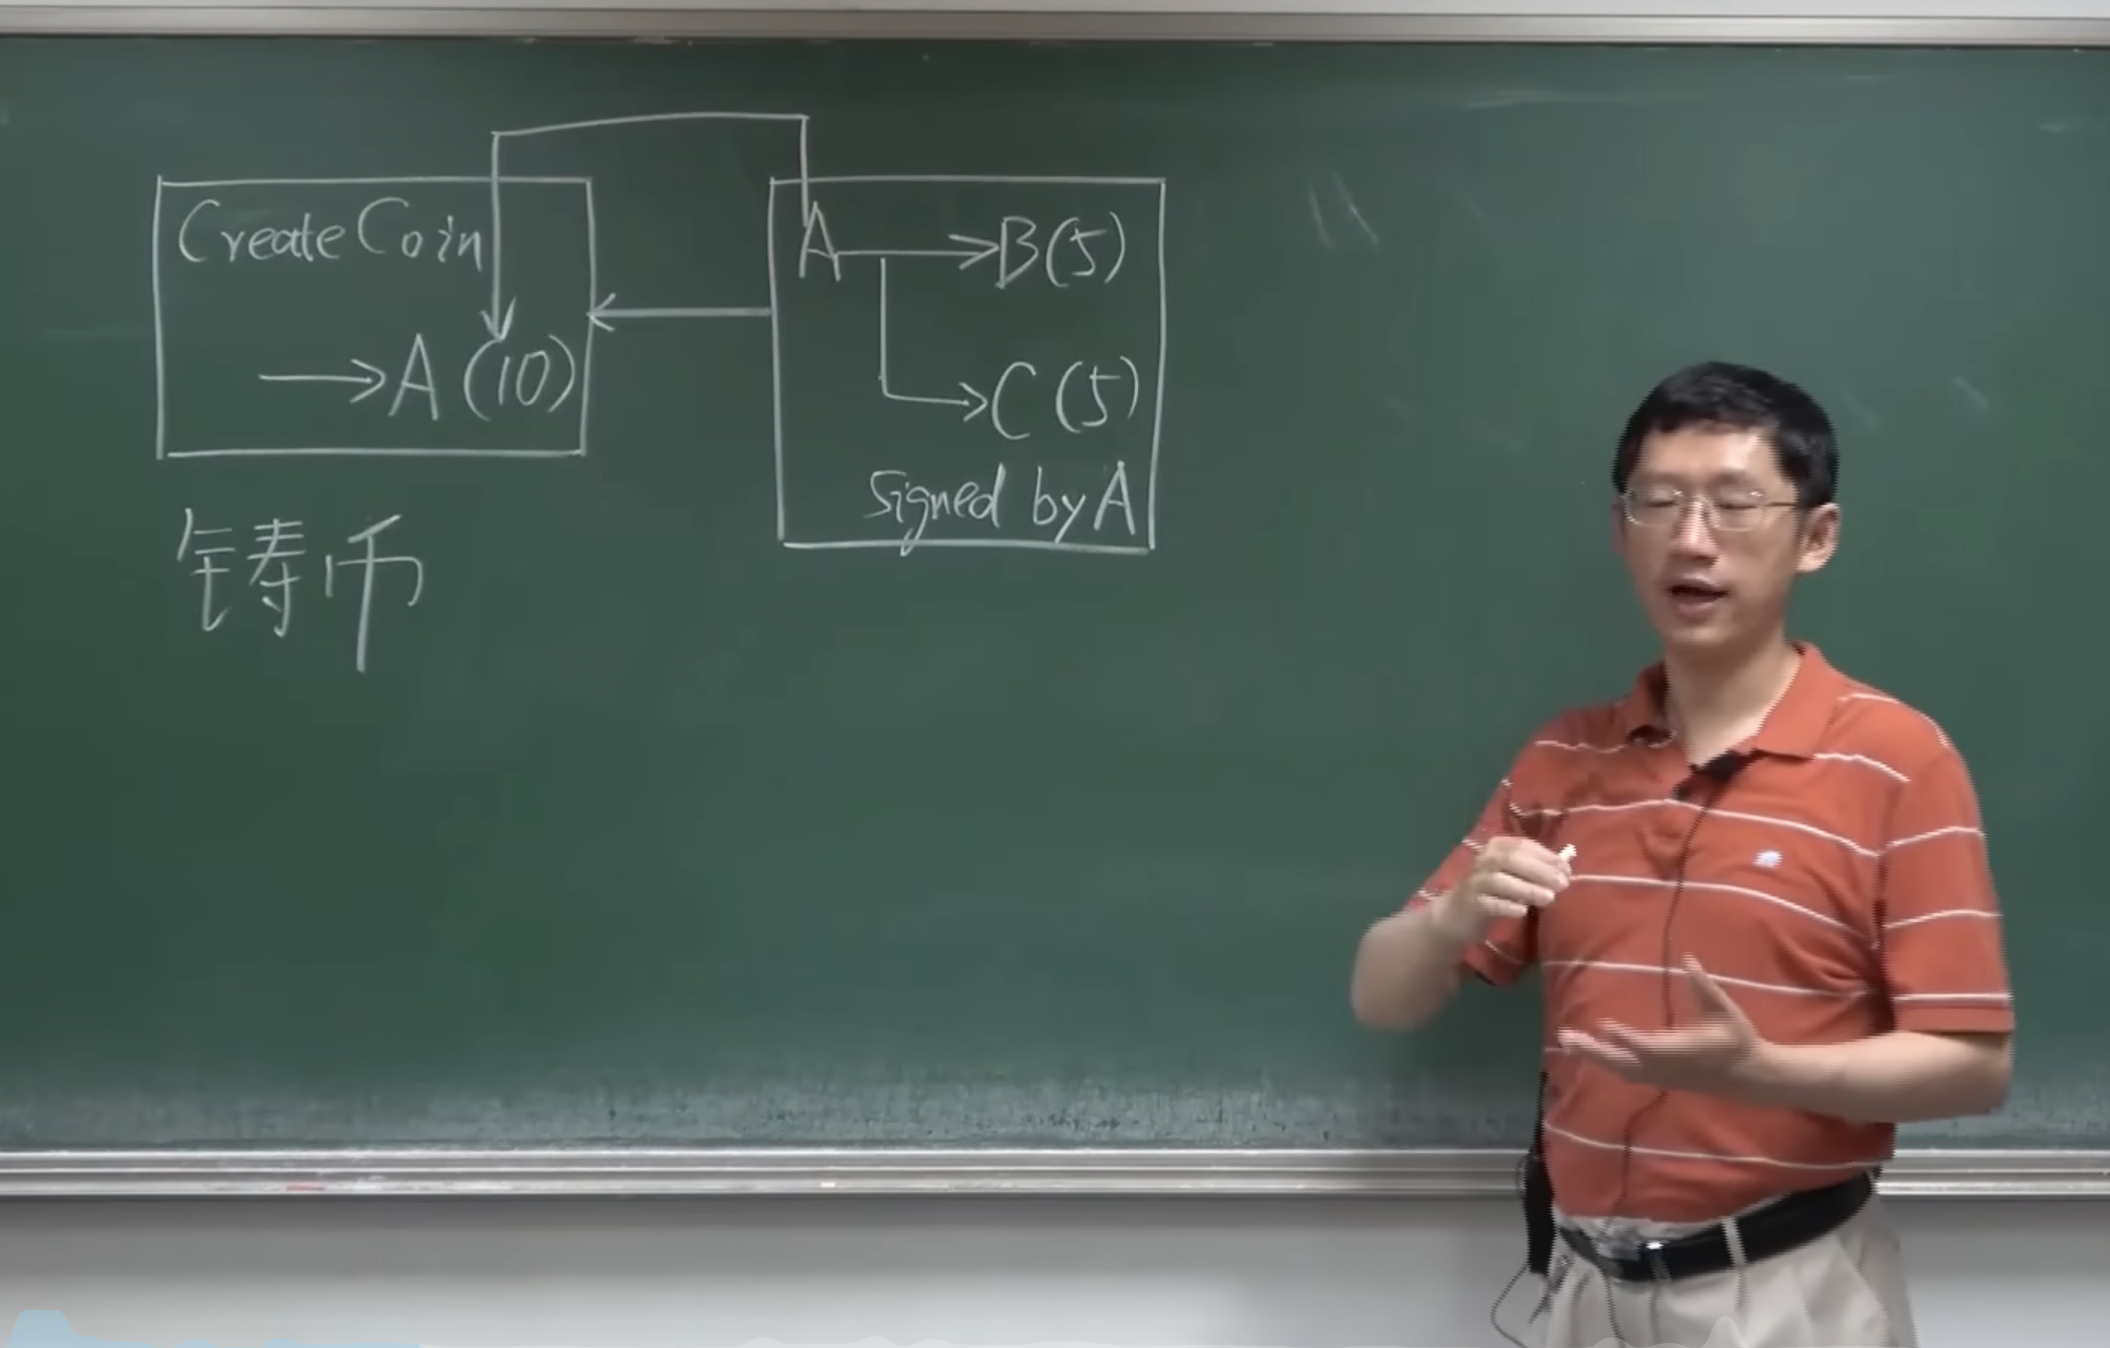 CreateCoin
→A(10)
铸币
A→B(5)
→C(5)
Signed by A